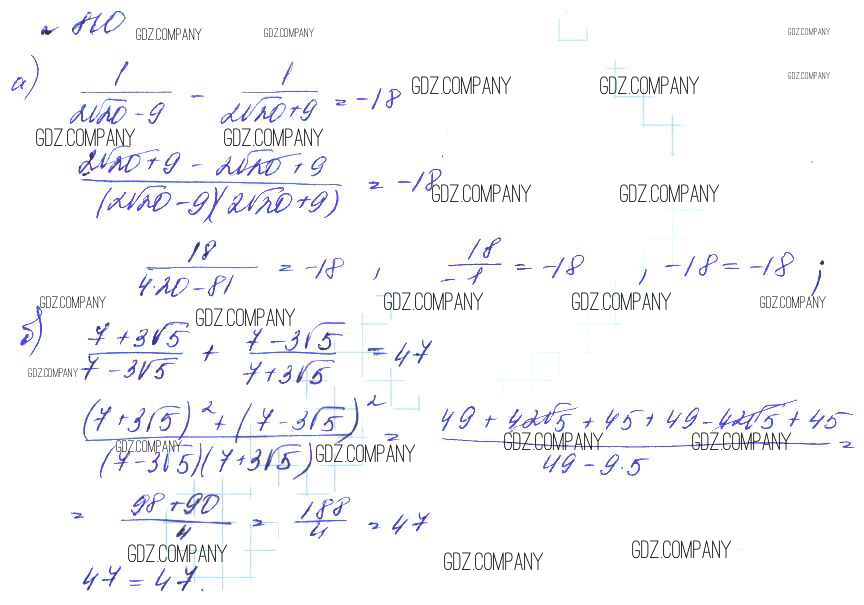 № 810 GDZ.COMPANY GDZ.COMPANY GDZ.COMPANY
а) 1/(2√20 - 9) - 1/(2√20 + 9) = -18 GDZ.COMPANY GDZ.COMPANY GDZ.COMPANY
GDZ.COMPANY GDZ.COMPANY
(2√20 + 9 - 2√20 + 9)/((2√20 - 9)(2√20 + 9)) = -18 GDZ.COMPANY GDZ.COMPANY
18/(4·20 - 81) = -18 , 18/(-1) = -18 , -18 = -18 ;
GDZ.COMPANY GDZ.COMPANY GDZ.COMPANY GDZ.COMPANY GDZ.COMPANY
б) (7 + 3√5)/(7 - 3√5) + (7 - 3√5)/(7 + 3√5) = 47
GDZ.COMPANY
((7 + 3√5)² + (7 - 3√5)²)/((7 - 3√5)(7 + 3√5)) = (49 + 42√5 + 45 + 49 - 42√5 + 45)/(49 - 9·5) =
GDZ.COMPANY GDZ.COMPANY GDZ.COMPANY GDZ.COMPANY
= (98 + 90)/4 = 188/4 = 47
GDZ.COMPANY GDZ.COMPANY GDZ.COMPANY
47 = 47.